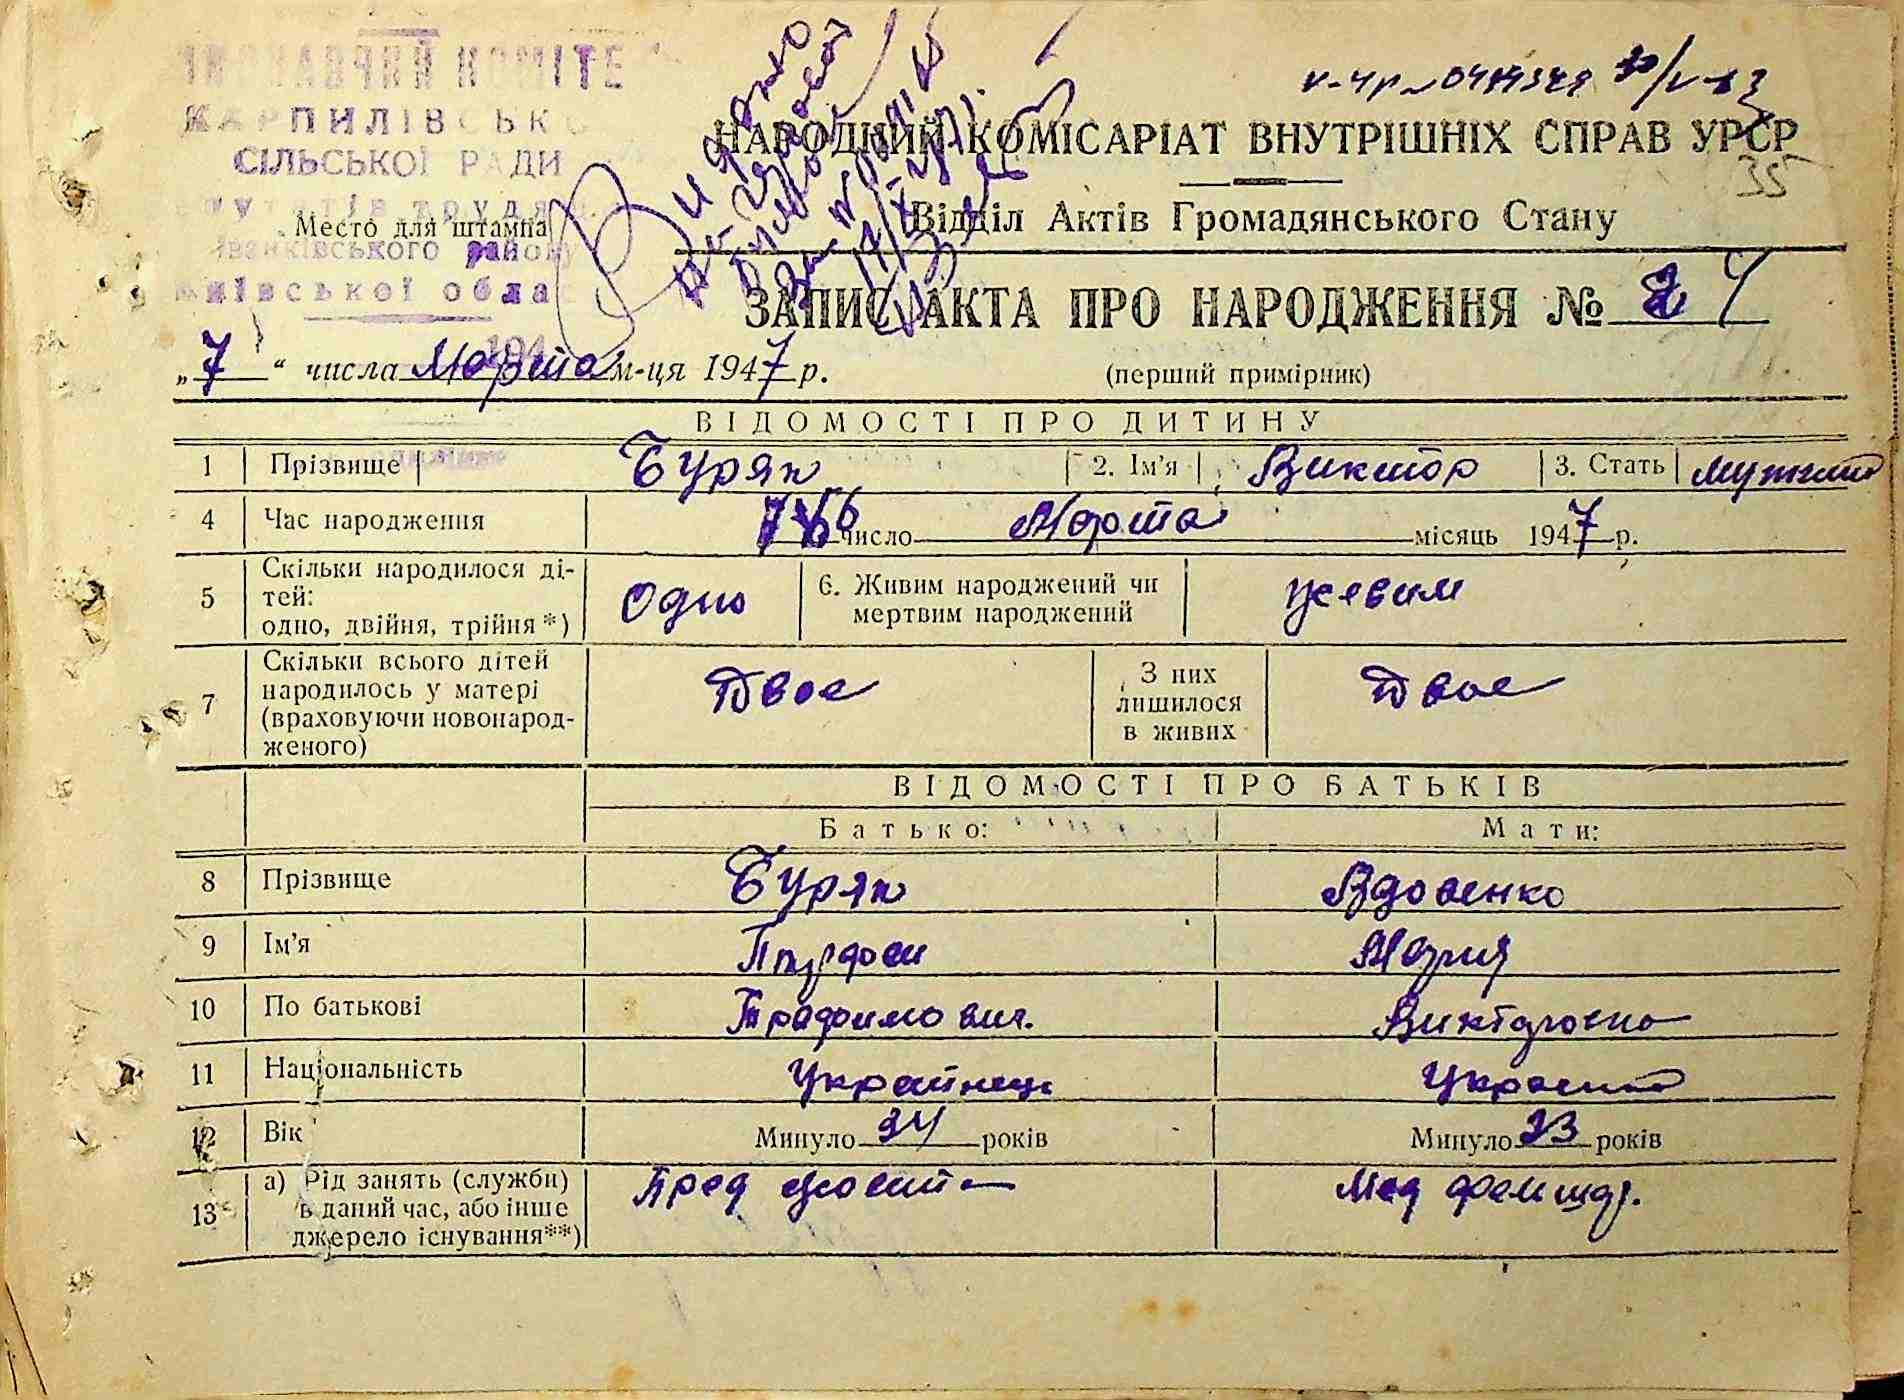 КАРПИЛІВСЬКО
СІЛЬСЬКОЇ РАДИ
Место для штампа
Іванківського району
Київської облас
НАРОДНИЙ КОМІСАРІАТ ВНУТРІШНІХ СПРАВ УРСР
35
Відділ Актів Громадянського Стану
ЗАПИС АКТА ПРО НАРОДЖЕННЯ № 24
„7“ числа Марта м-ця 1947 р.
(перший примірник)
ВІДОМОСТІ ПРО ДИТИНУ
1 Прізвище Буряк 2. Ім'я Виктор 3. Стать
4 Час народження число Марта місяць 1947 р.
5 Скільки народилося ді-
тей:
одно, двійня, трійня *) Одно 6. Живим народжений чи
мертвим народжений живим
7 Скільки всього дітей
народилось у матері
(враховуючи новонарод-
женого) Двое З них
лишилося
в живих Двое
ВІДОМОСТІ ПРО БАТЬКІВ
Батько: Мати:
8 Прізвище Буряк Вдовенко
9 Ім'я Мария
10 По батькові Трафимович. Викторовна
11 Національність Украйнець
12 Вік Минуло років Минуло 23 років
13 а) Рід занять (служби)
в даний час, або інше
джерело існування**) Пред Мед фельшар.